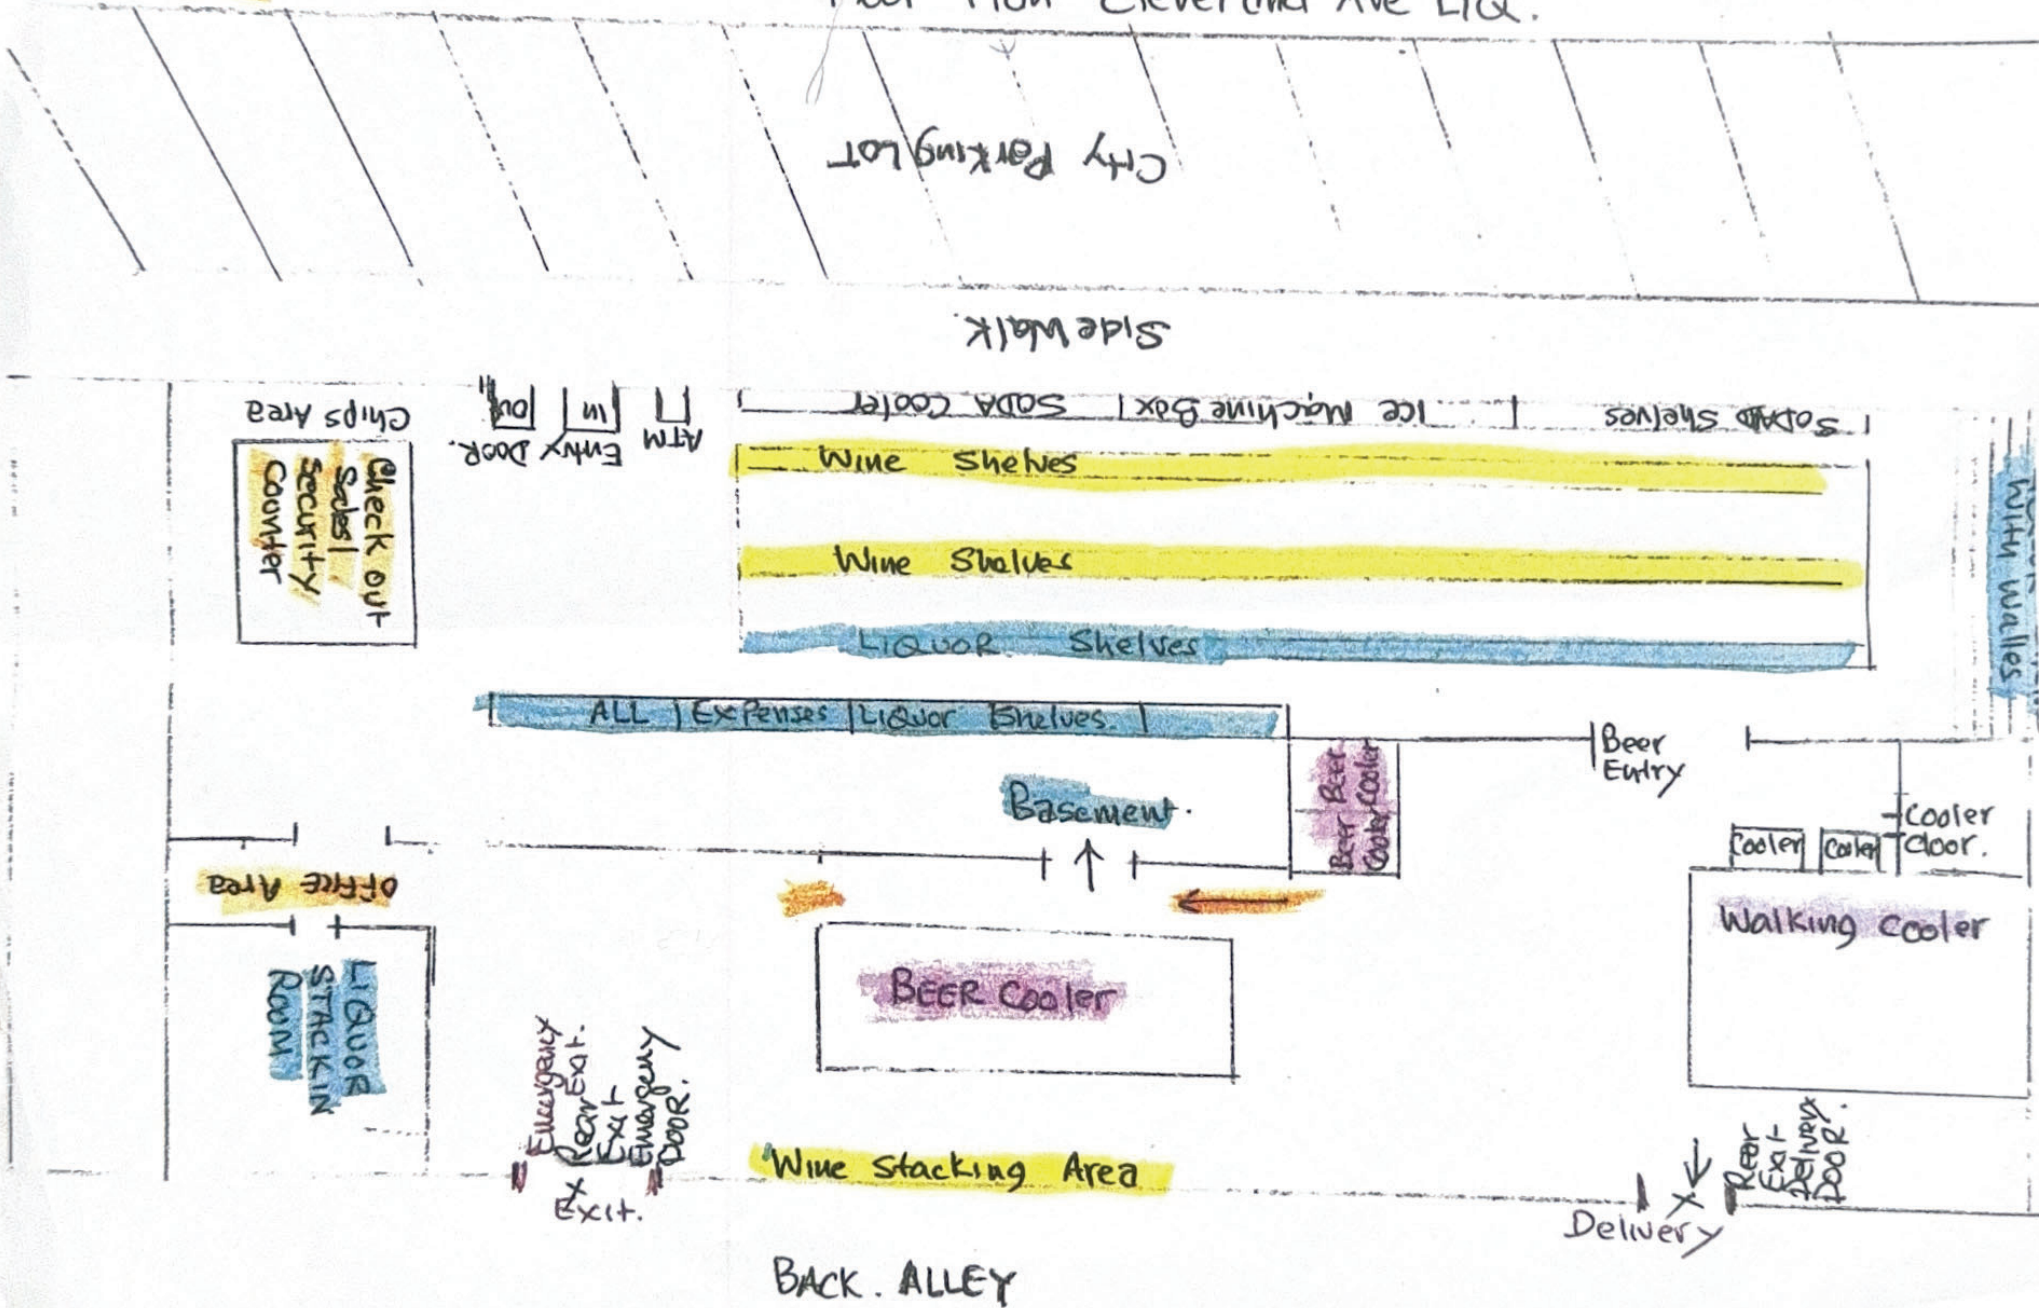 Floor Plan Cleveland Ave LIQ.
City Parking LOT
Sidewalk.
Chips Area
out
In
Entry DOOR.
ATM
SODA Cooler
Ice Machine Box
Shelves
Check out
Sales
Security
Counter
Wine Shelves
Wine Shalves
LIQUOR Shelves
ALL Expenses Liquor Shelves.
With Walles
Basement.
Beer Beer
Cooler Cooler
Beer
Entry
Cooler
Cooler
Cooler
door.
OFFICE Area
LIQUOR
STACKIN
ROWN
BEER Cooler
Walking Cooler
Emergency
Rear Exit.
Exit
Emergeny
DOOR.
X
Exit.
Wine Stacking Area
Rear
Exit
Delivery
DOOR.
X
Delivery
BACK. ALLEY